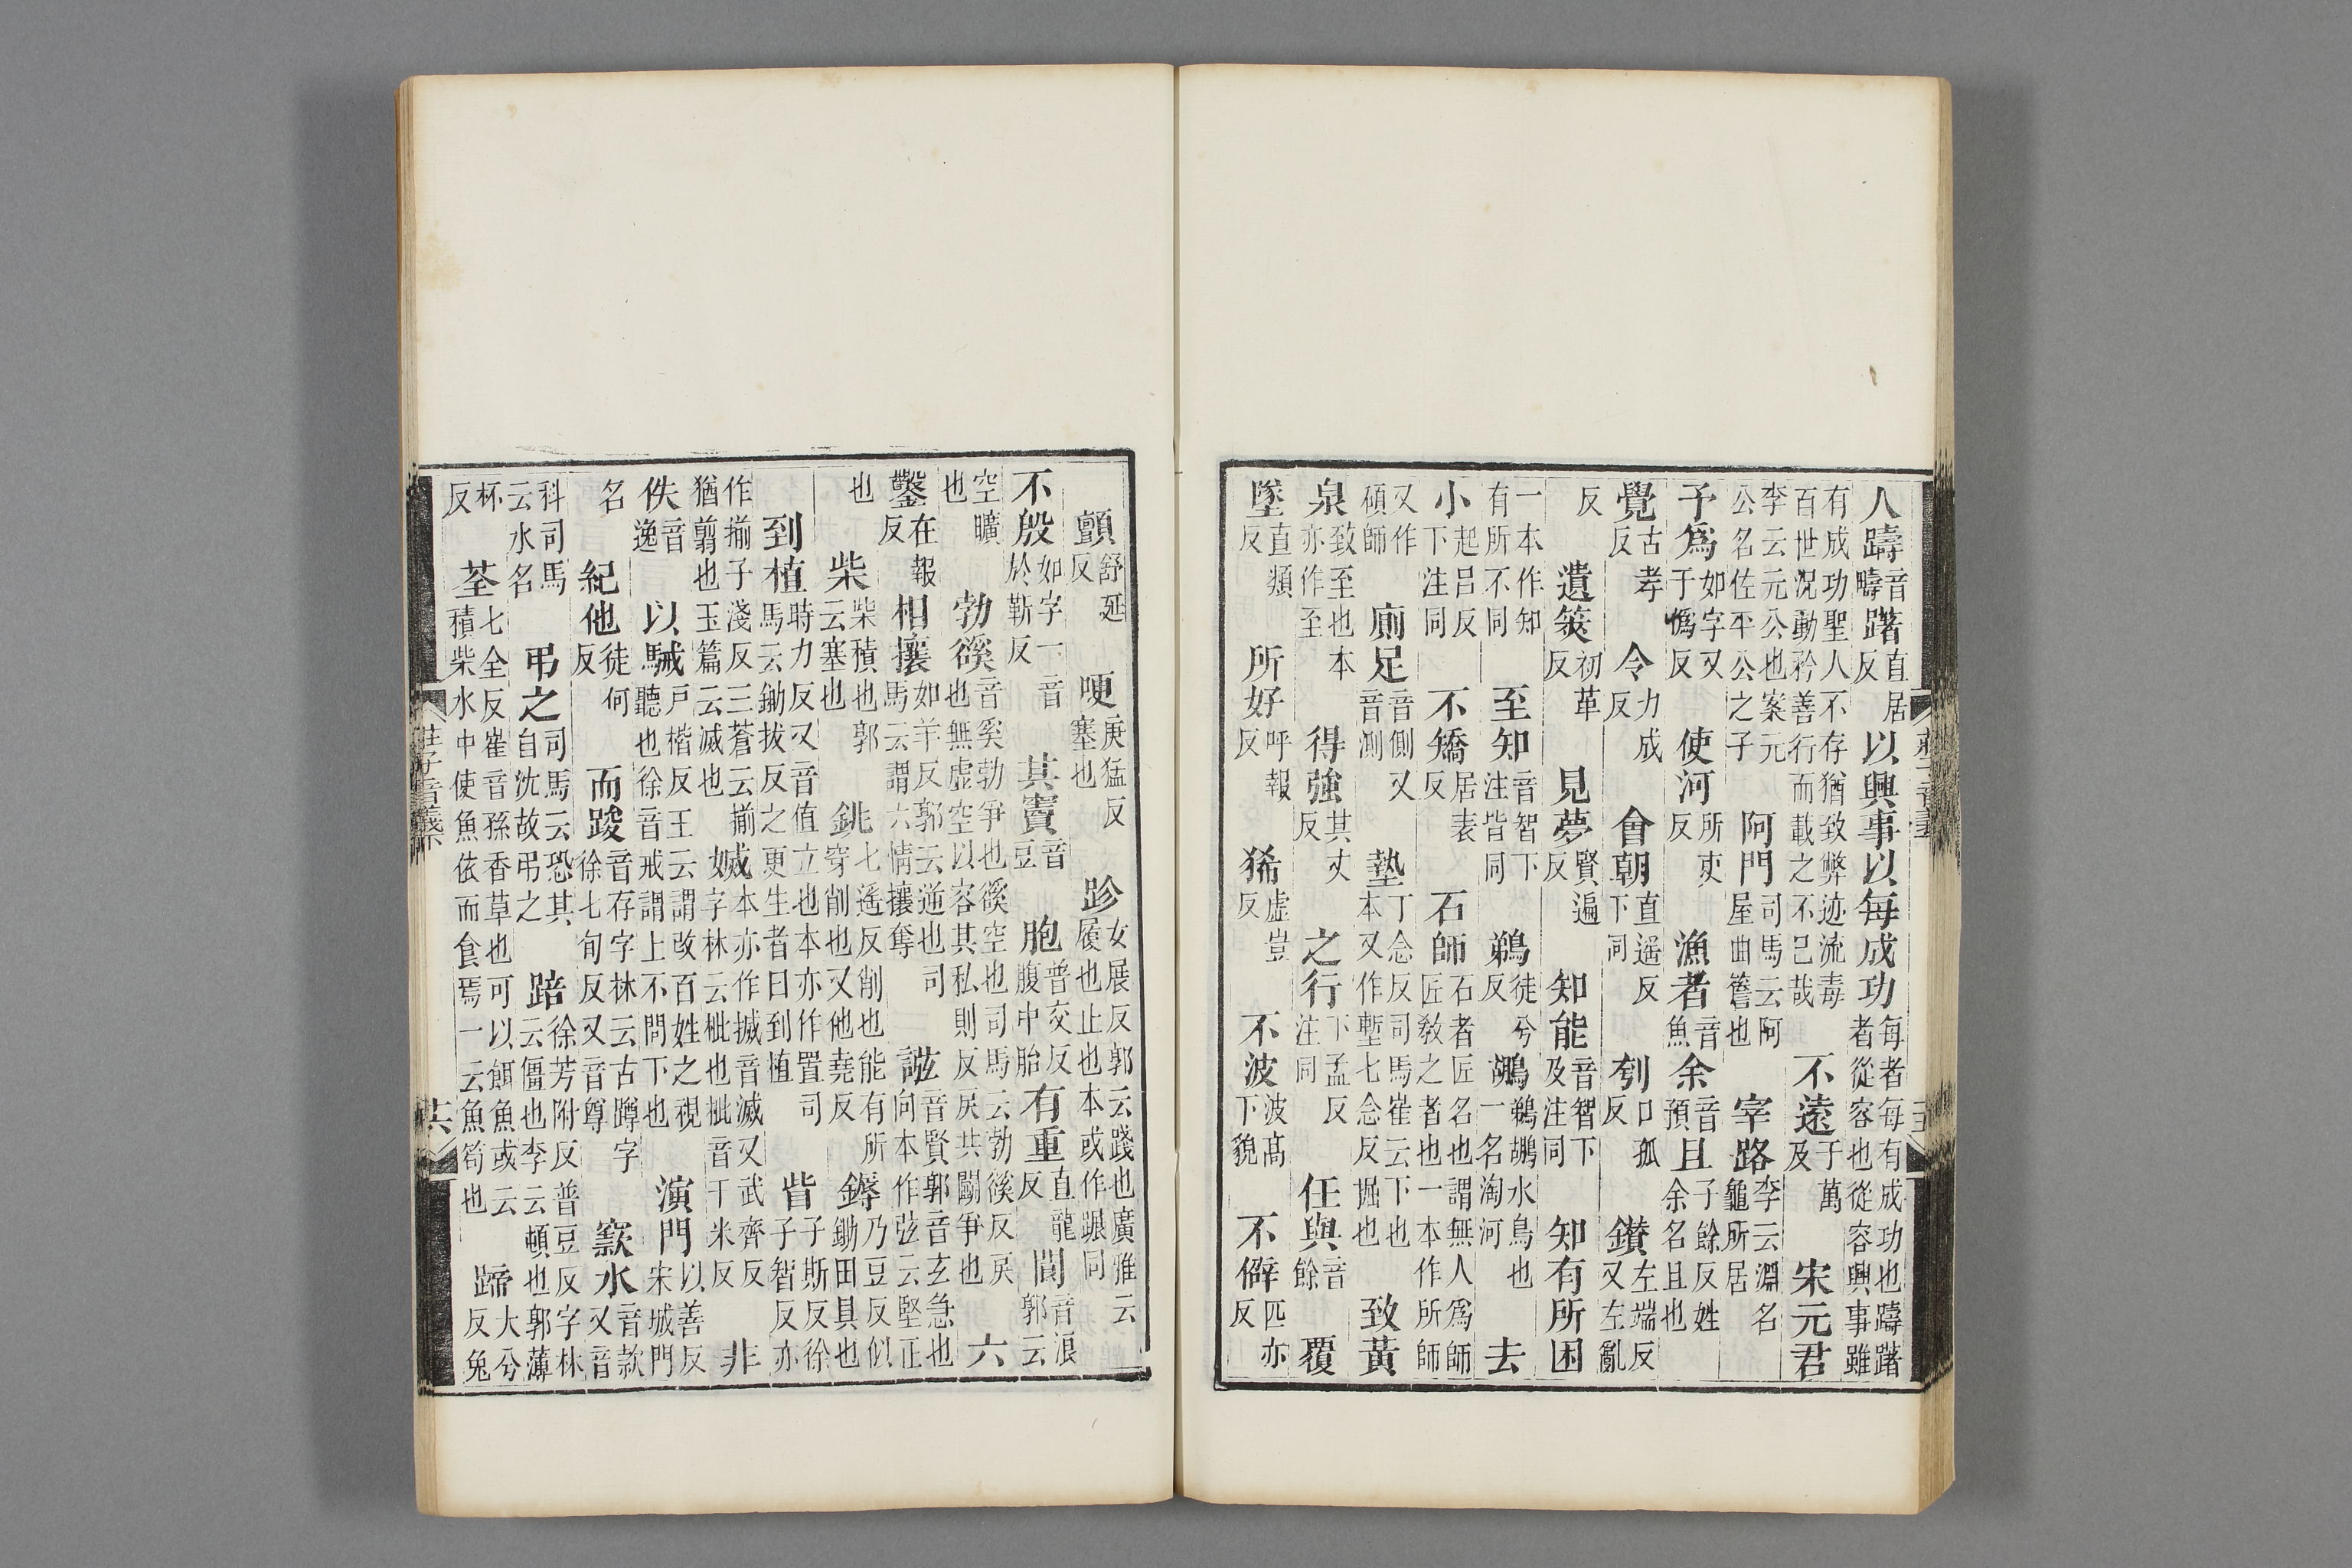 人躊音疇躇直居反以興事以每成功每者每有成功也躊躇者從容也從容興事雖
有成功聖人不存猶致弊迹流毒百世況動矜善行而載之不已哉不遠于萬及宋元君
李云元公也案元公名佐平公之子阿門司馬云阿屋曲簷也宰路李云淵名龜所居
予爲如字又于僞反使河所吏反漁者音魚余音預且子餘反姓余名且也
覺古孝反令力成反會朝直遥反下同刳口孤反鑽左端反又左亂
反遺筴初革反見夢賢遍反知能音智下及注同知有所困
一本作知有所不同至知音智下注皆同鵜徒兮反鶘鵜鶘水鳥也一名淘河去
小起呂反下注同不矯居表反石師石者匠名也謂無人爲師匠敎之者也一本作所師
又作碩師廁足音側又音測墊丁念反司馬崔云下也本又作塹七念反掘也致黃
泉致至也本亦作至得強其丈反之行下孟反注同任與音餘覆
墜直類反所好呼報反狶虛豈反不波波高下貌不僻匹亦反
顫舒延反哽庚猛反塞也跈女展反郭云踐也廣雅云履也止也本或作䠼同
不殷如字一音於靳反其竇音豆胞普交反腹中胎有重直龍反閬音浪郭云
空曠也勃豀音奚勃爭也豀空也司馬云勃豀反戾也無虛空以容其私則反戾共鬭爭也六
鑿在報反相攘如羊反郭云逆也司馬云謂六情攘奪誸音賢郭音玄急也向本作弦云堅正
也柴柴積也郭云塞也銚七遥反削也能有所穿削也又他堯反鎒乃豆反似鋤田具也
到植時力反又音值立也本亦作置司馬云鋤拔反之更生者曰到植眥子斯反徐子智反亦
作揃子淺反三蒼云揃猶翦也玉篇云滅也搣本亦作搣音滅又武齊反字林云批也批音千米反非
佚音逸以駴戶楷反王云謂改百姓之視聽也徐音戒謂上不問下也演門以善反宋城門
名紀他徒何反而踆音存字林云古蹲字徐七旬反又音尊窾水音款又音
科司馬云水名弔之司馬云恐其自沈故弔之踣徐芳附反普豆反字林云僵也李云頓也郭薄
杯反荃七全反崔音孫香草也可以餌魚或云積柴水中使魚依而食焉一云魚笱也蹄大兮反兔
莊子音義下